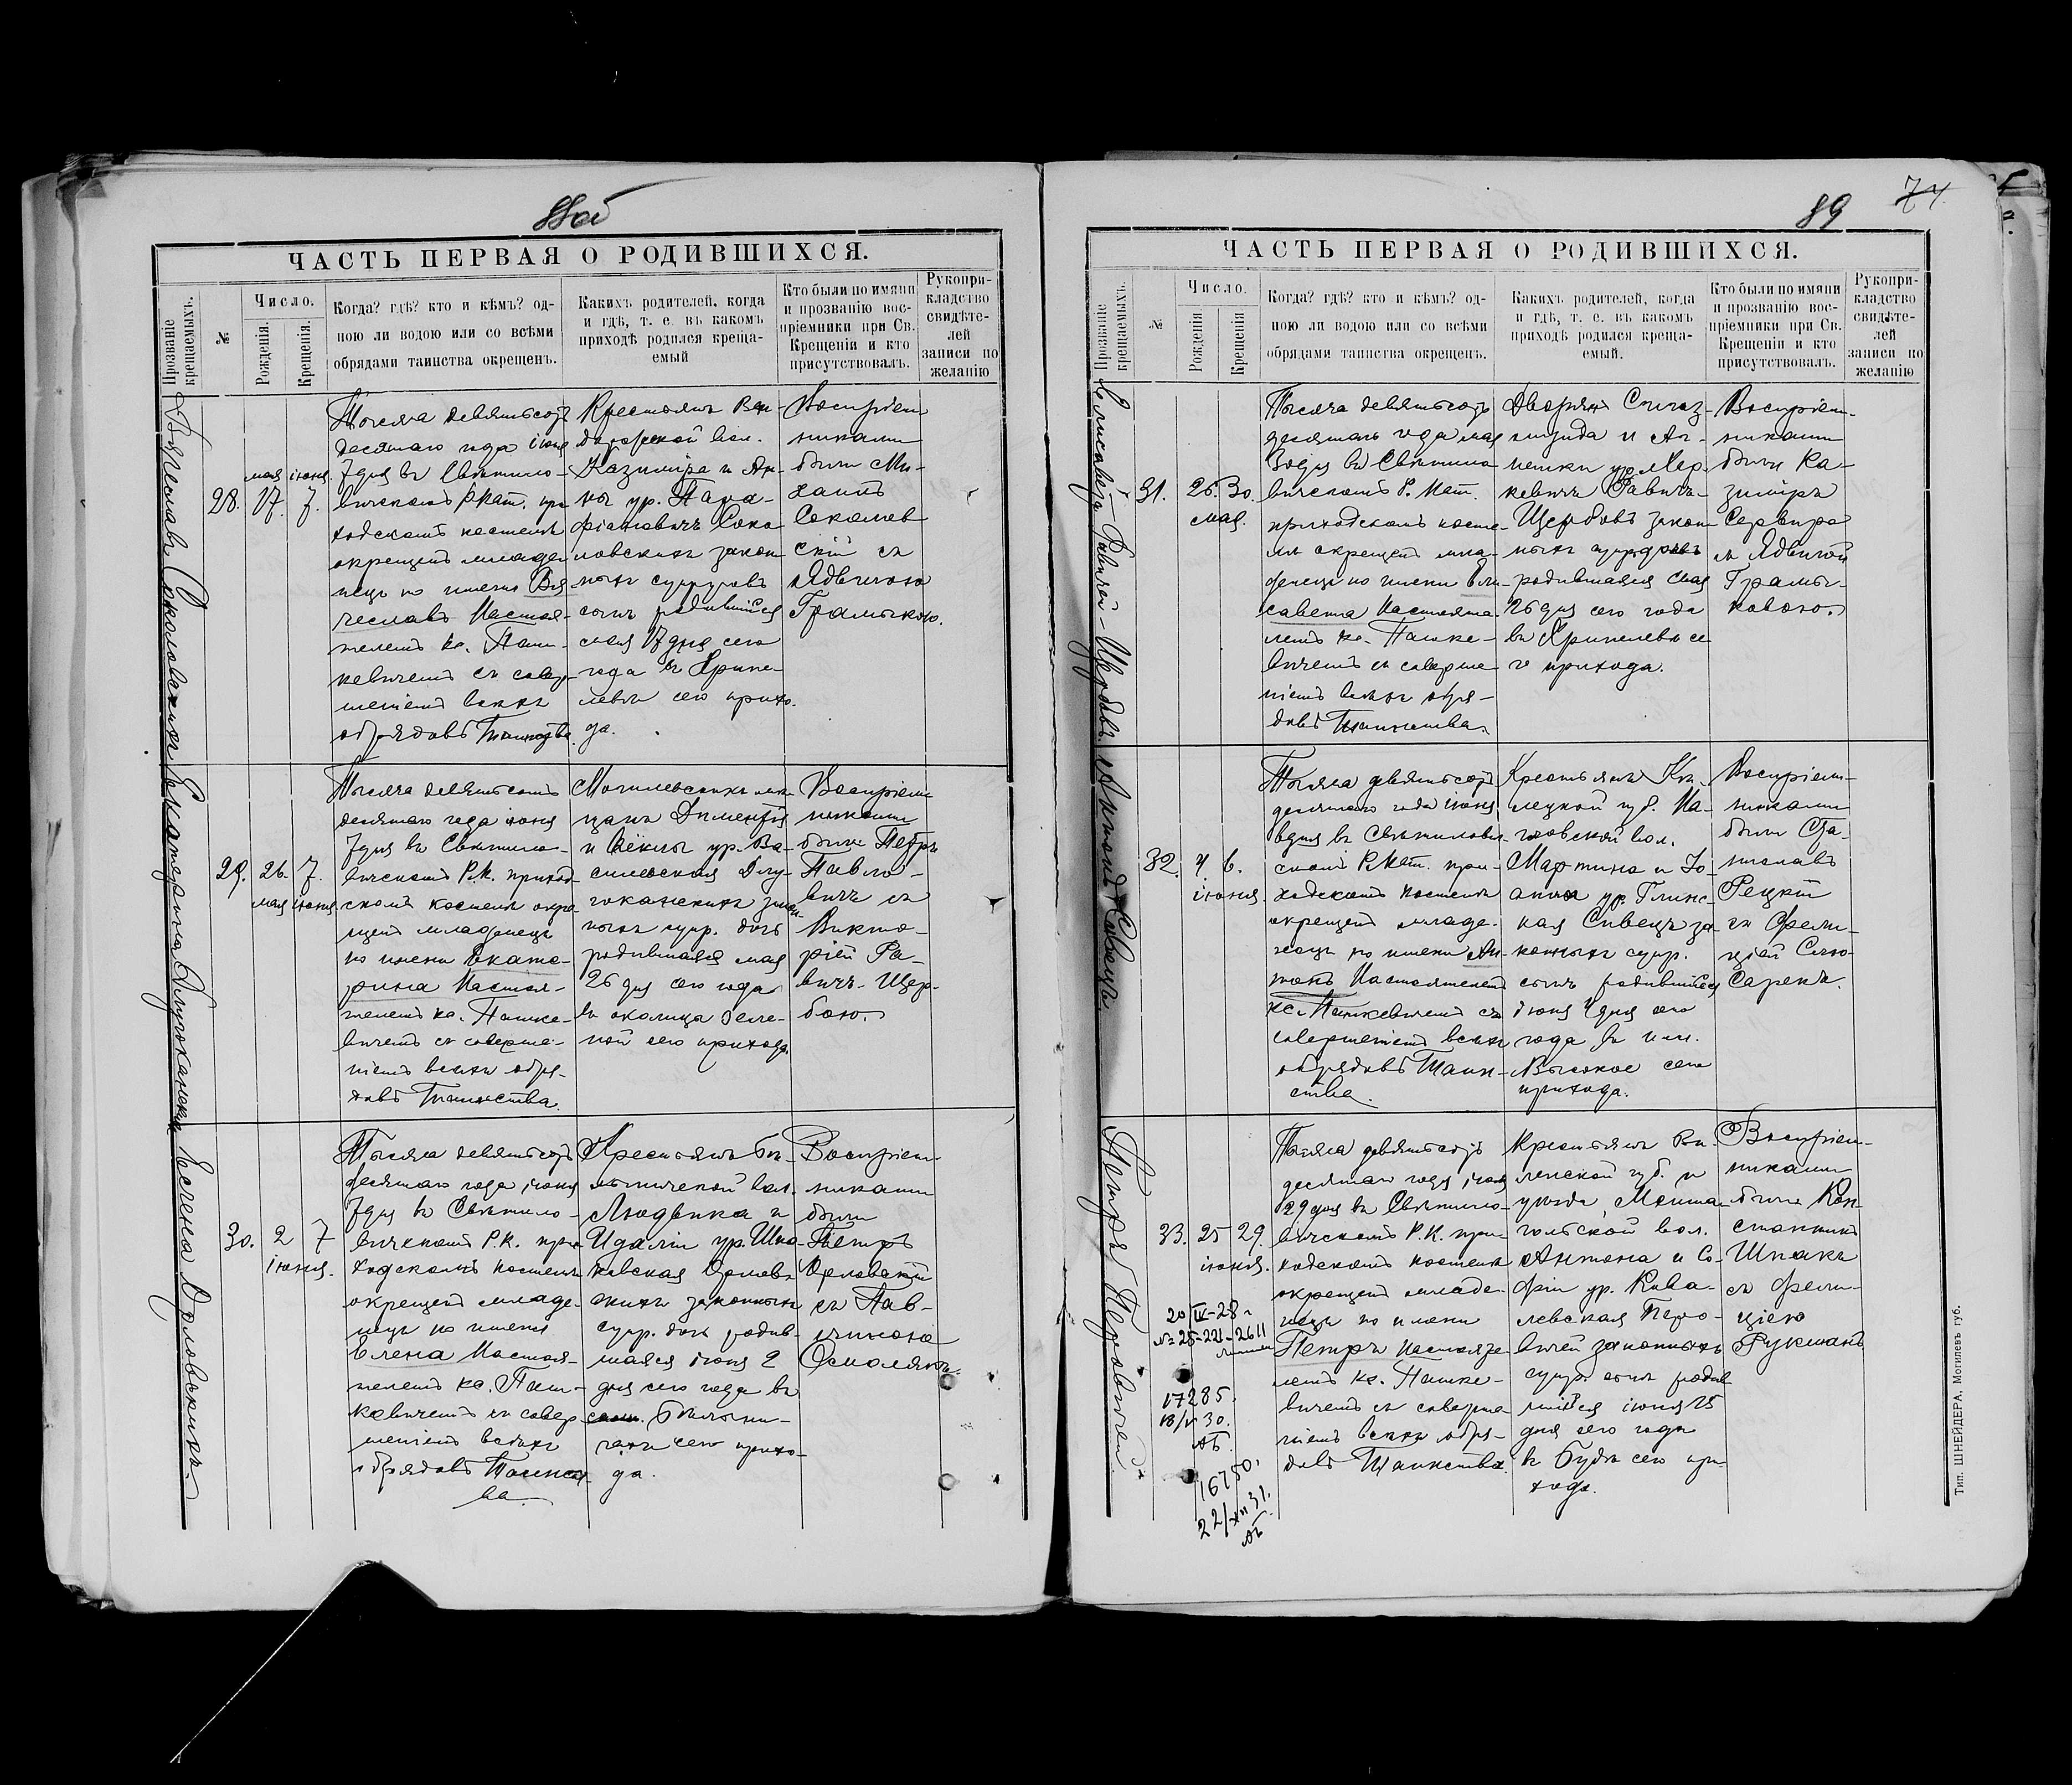 88об
ЧАСТЬ ПЕРВАЯ О РОДИВШИХСЯ.
Прозваніе крещаемыхъ.
№
Число.
Рожденія.
Крещенія.
Когда? гдѣ? кто и кѣмъ? од-
ною ли водою или со всѣми
обрядами таинства окрещенъ.
Какихъ родителей, когда
и гдѣ, т. е. въ какомъ
приходѣ родился креща-
емый
Кто были по имяни
и прозванію вос-
пріемники при Св.
Крещеніи и кто
присутствовалъ.
Рукопри-
кладство
свидѣте-
лей
записи по
желанію
Вячеславъ Соколовскихъ
28.
мая
17.
іюня.
7.
Тысяча девятьсотъ
десятаго года іюня
7 дня въ Свѣтило-
вичскомъ Р. Кат. при
ходскомъ костелѣ
окрещенъ младе
нецъ по имени Вя
чеславъ Настоя-
телемъ кс. Паш-
кевичемъ съ совер-
шеніемъ всѣхъ
обрядовъ Таинства.
Крестьянъ
вол.
Казиміра и Ан-
ны ур. Пара-
фіановичъ Соко
ловскихъ закон
ныхъ супруговъ
сынъ родившійся
мая 17 дня сего
года въ Хрипе-
левѣ сего прихо.
да.
Воспріем
никами
были Ми-
хаилъ
Соколов-
скій съ
Ядвигою
Грамыкою.
Екатерина Длугоканскихъ
29.
26.
мая
7.
іюня
Тысяча девятьсотъ
десятаго года іюня
7 дня въ Свѣтило-
вичскомъ Р.К. приход-
скомъ костелѣ окре-
щенъ младенецъ
по имени Екате-
рина Настоя-
телемъ кс. Пашке-
вичемъ съ соверше-
ніемъ всѣхъ обря-
довъ Таинства.
Могилевскихъ мѣ
щанъ Дементія
и Ѳёклы ур. Ва-
силевская Длу-
гоканскихъ закон
ныхъ супр. дочь
родившаяся мая
26 дня сего года
въ околицѣ Зеле-
ной сего прихода.
Воспріем
никами
были Петръ
Павло-
вичъ съ
Викто-
рiей Ра-
вичъ-Щер-
бою.
Елена Орловскихъ.
30.
2
іюня.
7
Тысяча девятьсотъ
десятаго года іюня
7 дня въ Свѣтило-
вичскомъ Р.К. при-
ходскомъ костелѣ
окрещенъ младе-
нецъ по имени
Елена Настоя-
телемъ кс. Паш-
кевичемъ съ совер
шеніемъ всѣхъ
обрядовъ Таинст-
ва.
Крестьянъ Бѣ-
лыничской вол.
Людвика и
Идаліи ур.
Орлов
скихъ законныхъ
супр. дочь родив-
шаяся іюня 2
дня сего года въ
Бѣлыни-
чахъ сего прихо-
да.
Воспріем-
никами
были
Петръ
Орловскій
съ Пав-
линою
Осмоловскою
89
74.
ЧАСТЬ ПЕРВАЯ О РОДИВШИХСЯ.
Прозваніе крещаемыхъ.
№
Число.
Рожденія
Крещенія
Когда? гдѣ? кто и кѣмъ? од-
ною ли водою или со всѣми
обрядами таинства окрещенъ.
Какихъ родителей, когда
и гдѣ, т. е. въ какомъ
приходѣ родился креща-
емый.
Кто были по имяни
и прозванію вос-
пріемники при Св.
Крещеніи и кто
присутствовалъ.
Рукопри-
кладство
свидѣте-
лей
записи по
желанію
Елисавета Равичъ-Щербовъ.
31.
26.
мая.
30.
Тысяча девятьсотъ
десятаго года мая
30 дня въ Свѣтило
вичскомъ Р. Кат.
приходскомъ косте-
лѣ окрещенъ мла-
денецъ по имени Ели-
савета Настояте-
лемъ кс. Пашке-
вичемъ съ соверше
ніемъ всѣхъ обря-
довъ Таинства.
Дворянъ Сигиз-
мунда и Аг-
нешки ур.
Равичъ-
Щербовъ закон
ныхъ супруговъ
родившаяся мая
26 дня сего года
въ Хрипелевѣ се
го прихода.
Воспріем-
никами
были Ка-
зиміръ
съ Ядвигой
Грамы-
ковою.
Антонъ Сивецъ.
32.
4
іюня.
6.
Тысяча девятьсотъ
десятаго года іюня
6 дня въ Свѣтилович
скомъ Р. Кат. при-
ходскомъ костелѣ
окрещенъ младе-
нецъ по имени Ан-
тонъ Настоятелемъ
кс. Пашкевичемъ съ
совершеніемъ всѣхъ
обрядовъ Таин-
ства.
Крестьянъ Кѣ-
лецкой губ.
вол.
Мартина и Іо-
анны ур. Глинс-
кая Сивецъ за-
конныхъ супр.
сынъ родившійся
іюня 4 дня сего
года въ им.
Высокое сего
прихода.
Воспріем-
никами
были Ста-
ниславъ
Рецкій
съ Фели-
ціей Слю-
Саренъ.
Петръ Перовичей
33.
25
іюня.
29.
20/IV-28 г
№=25-221-2611
17285.
18/V 30.
АБ.
16750.
22/XII 31.
АБ
Тысяча девятьсотъ
десятаго года іюня
29 дня въ Свѣтило-
вичскомъ Р.К. при-
ходскомъ костелѣ
окрещенъ младе-
нецъ по имени
Петръ Настояте-
лемъ кс. Пашке-
вичемъ съ соверше
ніемъ всѣхъ обря-
довъ Таинства.
Крестьянъ Ви-
ленской губ. и
уѣзда, Мейша-
гольской вол.
Антона и Со-
фіи ур. Кова-
левская Перо-
вичей законныхъ
супр. сынъ родив
шійся іюня 25
дня сего года
въ Будѣ сего при-
хода.
Воспріем-
никами
были Кон-
стантинъ
Шпакъ
съ Фели-
ціею
Рукманъ
Тип. ШНЕЙДЕРА, Могилевъ губ.